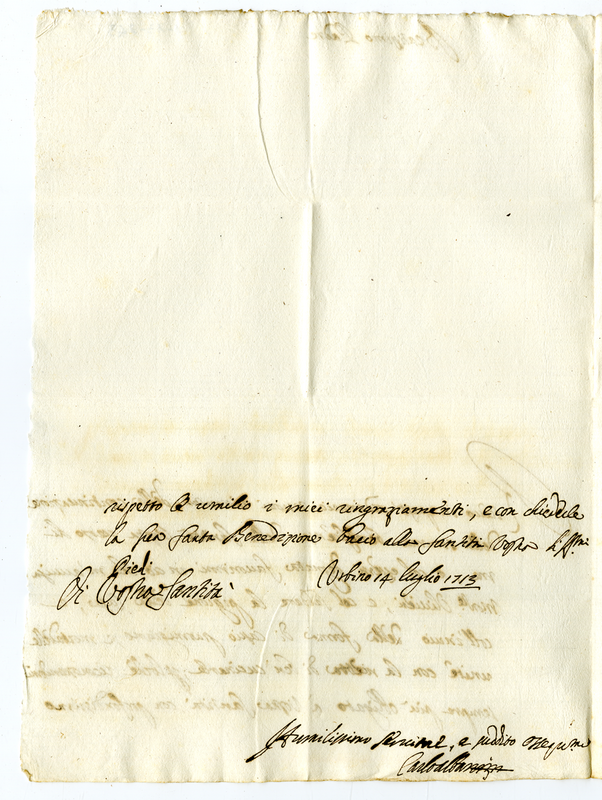 rispetto le umilio i miei ringraziamenti, e con chiederle
la sua Santa Benedizione bacio alla Santità Vostra li Ssmi
Piedi
Di Vostra Santità
Urbino 14 luglio 1713
Humilissimo servitore, e suddito
Carlo Albani